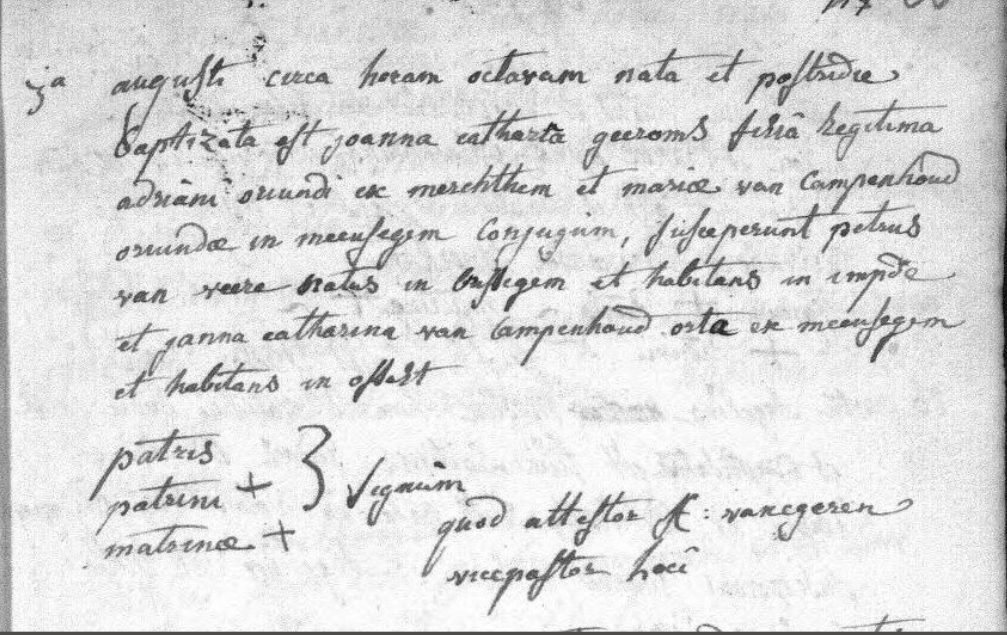 3a augusti circa horam octavam nata et postridie
baptizata est joanna catharia geeroms filiâ legitima
adriani oriundi ex merchthem et mariæ van Campenhoud
oriundæ in meeusegem Conjugum, susceperunt petrus
van veere natus in Ossegem et habitans in impde
et janna catharina van Campenhoud orta ex meeusegem
et habitans in ossel
patris
patrini + } signum
matrinæ +
quod attestor : vanegeren
vicepastor loci